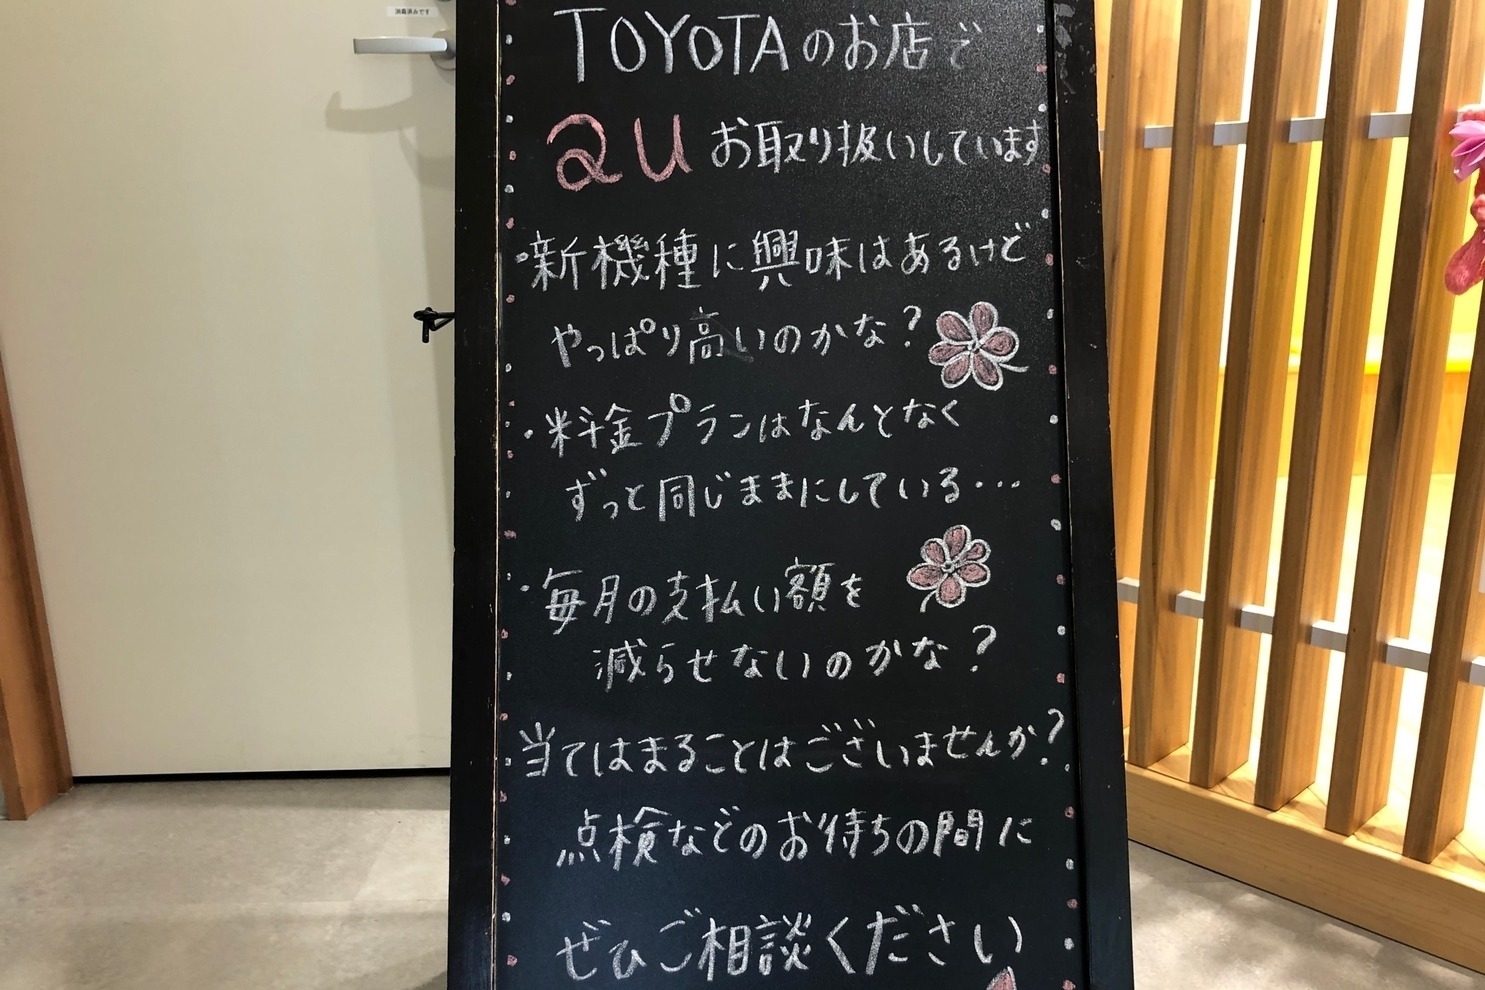 消毒済みです
TOYOTAのお店で
au お取り扱いしています
・新機種に興味はあるけど
やっぱり高いのかな？
・料金プランはなんとなく
ずっと同じままにしている…
・毎月の支払い額を
減らせないのかな？
当てはまることはございませんか？
点検などのお待ちの間に
ぜひご相談ください